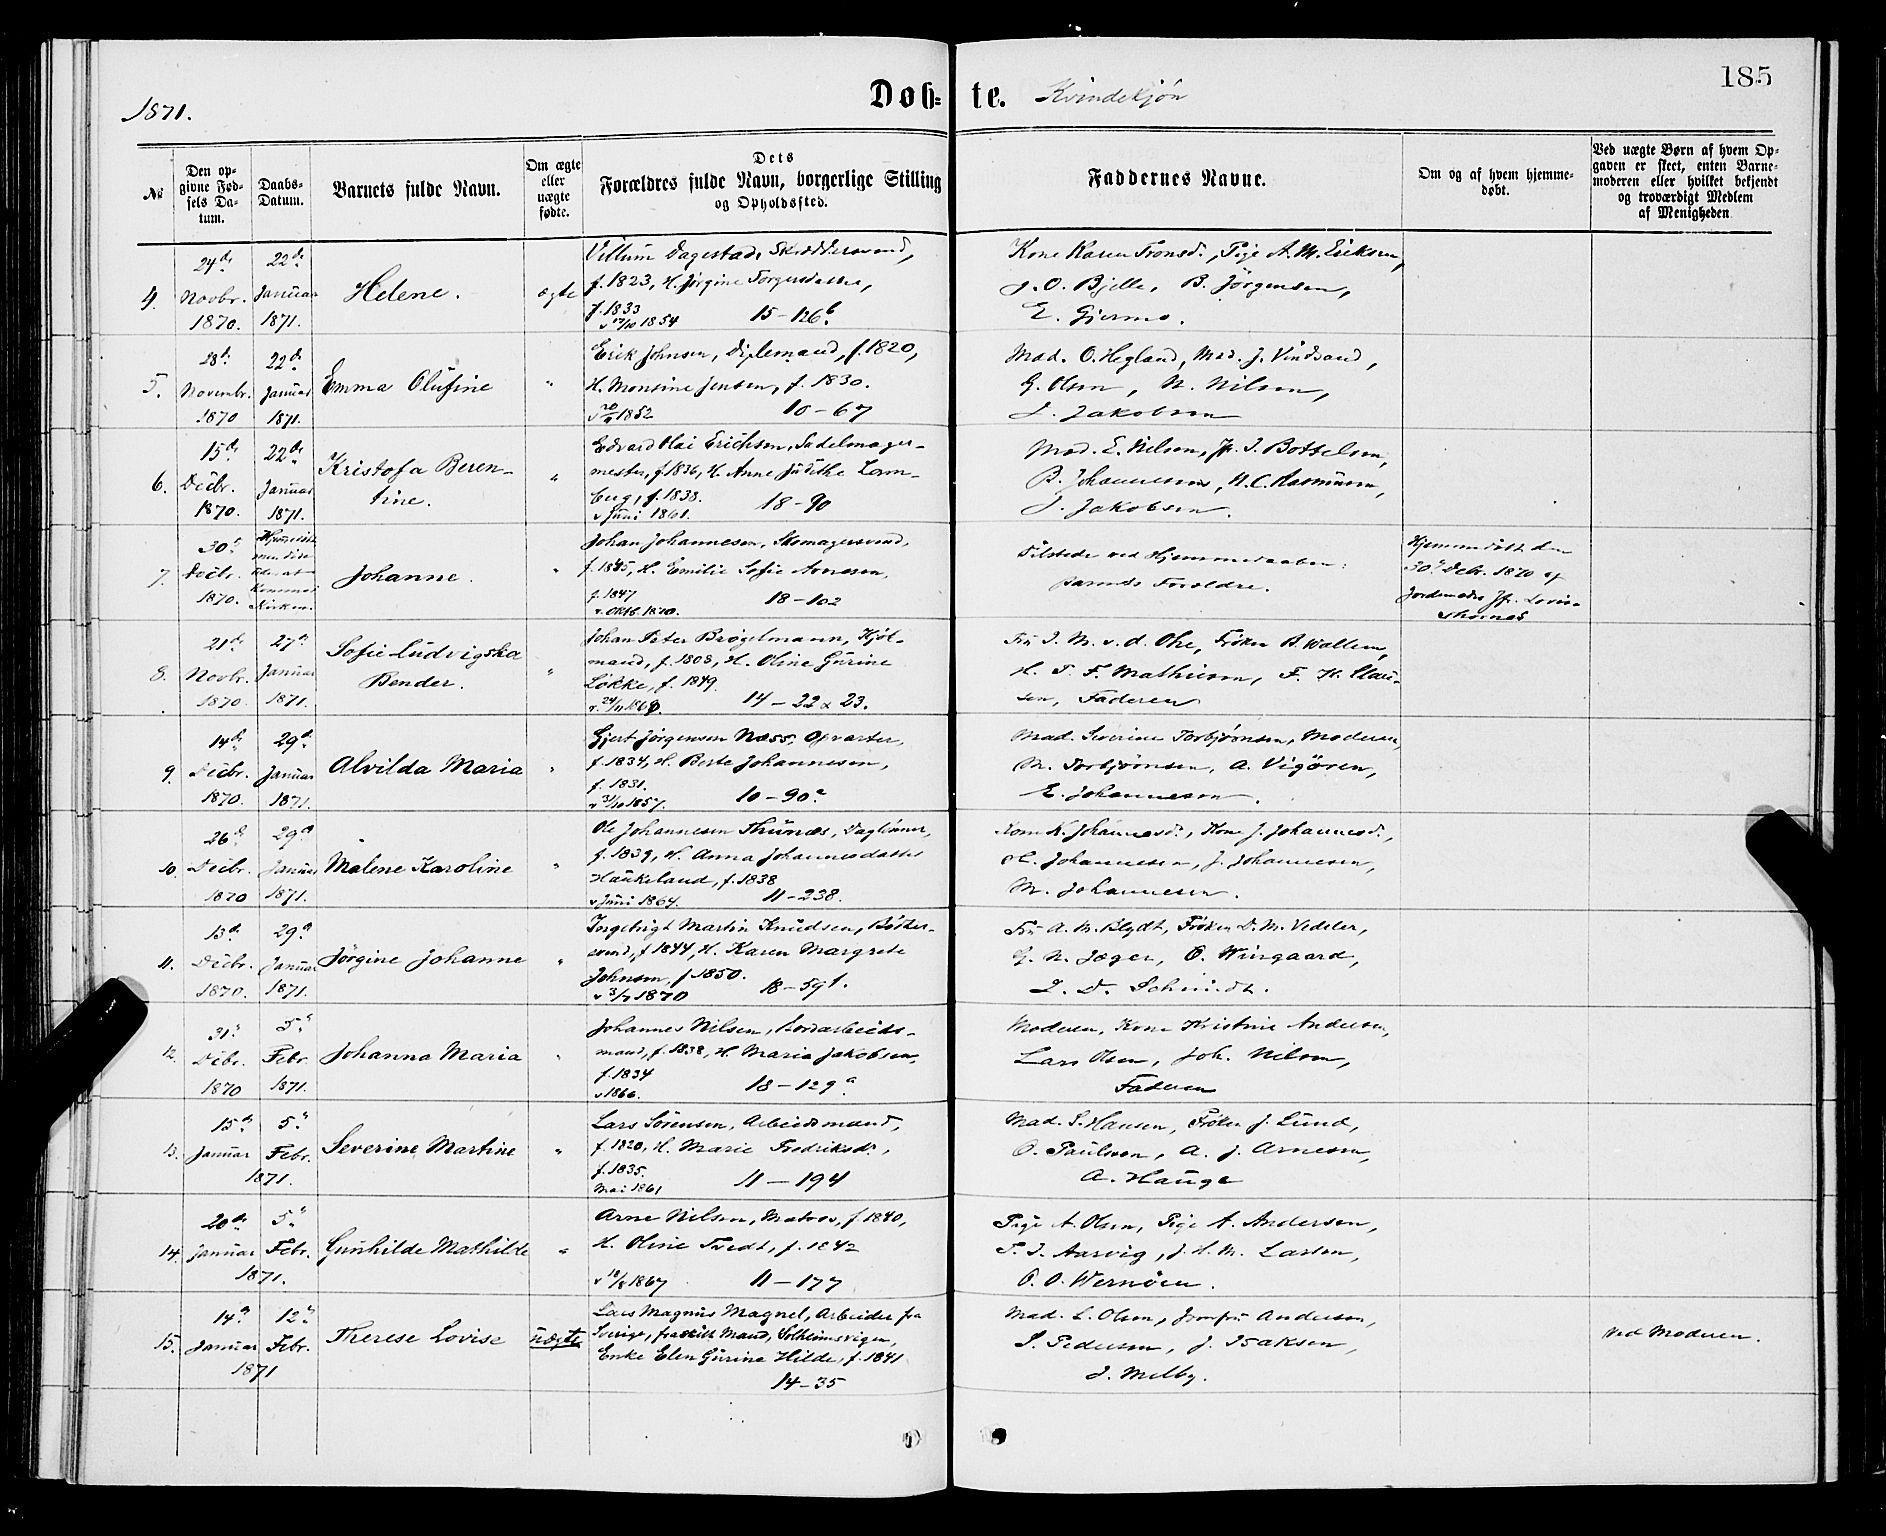 185
1871.
Døb- te. Kvindekjøn
№
Den opgivne Fødsels Datum.
Daabs-Datum.
Barnets fulde Navn.
Om ægte eller uægte fødte.
Dets Forældres fulde Navn, borgerlige Stilling og Opholdssted.
Faddernes Navne.
Om og af hvem hjemmedøbt.
Ved uægte Børn af hvem Opgaven er skeet, enten Barnemoderen eller hvilket bekjendt og troværdigt Medlem af Menigheden
4.
24de Novbr. 1870.
22de Januar 1871.
Helene.
ægte
Villum Dagestad, Skræddersvend,
f. 1823, H. Jørgine Torgersdatter,
f. 1833
v 1854 15-126b.
Kone Karen Tronsd., Pige A. M. Eriksen,
J. O. Bjelle, B. Jörgensen,
E. Gjermo.
5.
28de Novembr. 1870
22de Januar 1871.
Emma Olufine
"
Erik Johnsen, f. 1820,
H. Monsine Jensen, f. 1830.
1852 10-67
Mad. O. Hegland, Mad. J. Vindsand,
G. Olsen, N. Nilsen,
J. Jakobsen
6.
15de Decbr. 1870.
22de Januar 1871.
Kristofa Beren-
tine.
"
Edvard Olai Erichsen, Sadelmager-
mester, f. 1836, H. Anne Judithe Lam-
berg, f. 1838.
v Juni 1861. 18-90
Mad. E. Nilsen, Jfr. I. Bottelsen,
B. Johannesen, H. C. Rasmussen,
J. Jakobsen.
7.
30te Decbr. 1870.
Kirken.
Johanne.
"
Johan Johannesen, Skomagersvend,
f. 1845, H. Emilie Sofie Arnesen,
f. 1847
v. Oktb. 1870. 18-102
Tilstede ved Hjemmedaaben:
Barnets Forældre.
Hjemmedøbt den
30te Debr. 1870 af
Jordemoder Jfr. Lovise
8.
21de Novbr. 1870
27de Januar 1871.
Sofie Ludvigska
Bender.
"
Johan Peter Brøgelmann, Kjøb-
mand, f. 1808, H. Oline Gurine
Løkke, f. 1849.
14-22 & 23.
Fru I. M. v. d. Ohe, Frøken B. Wallem,
H. T. F. Mathiesen, F. H. Clau-
sen, Faderen
9.
14de Decbr. 1870.
29de Januar 1871.
Alvilda Maria
"
Gjert Jørgensen Næss, Opvarter,
f. 1834, H. Berte Johannesen,
f. 1831.
v 31/10 1857. 10-90a
Mad. Severine Torbjørnsen, Moderen,
M. Torbjørnsen, A. Vigören,
E. Johannesen.
10
26de Decbr. 1870
29de Januar 1871.
Malene Karoline
"
Ole Johannesen Thunæs, Daglønner,
f. 1839, H. Anna Johannesdatter
Haukeland, f. 1838
v Juni 1864. 11-238.
Kone K. Johannesd., Kone J. Johannesd.,
Johannesen, J. Johannesen,
M. Johannesen.
11.
13de Decbr. 1870.
29de Januar 1871.
Jørgine Johanne
"
Ingebrigt Martin Knudsen, Bødker-
svend, f 1844, H. Karen Margrete
Johnsen, f 1850.
v 3/7 1870 18-59f.
Fru A. M. Blydt, Frøken D. M. Vedeler,
G. N. Jæger, O. Wingaard,
L. D. Schmidt.
12.
31te Decbr. 1870
5te Febr. 1871.
Johanna Maria
"
Johannes Nilsen, Jordarbeids-
mand, f. 1838, H. Maria Jakobsen,
f. 1834
v 1866. 18-129a
Moderen, Kone Kristine Andersen,
Lars Olsen, Joh. Nilsen,
Faderen
13.
15de Januar
5te Febr.
1871.
Severine Martine
"
Lars Sørensen, Arbeidsmand,
f. 1820, H. Marie Fredriksd.,
f. 1835.
Mai 1861 11-194
Mad. S. Hansen, Frøken J. Lund,
O. Paulsen, A. J. Arnesen,
A. Hauge
14.
20de Januar
5te Febr.
1871.
Gunhilde Mathilde
"
Arne Nilsen, Matros, f. 1840,
H. Oline Tvedt, f. 1842
1867 11-177
Pige A. Olsen, Pige A. Andersen,
T. I. Aarvig, J. H. M. Larsen,
O. O. Wernöen.
15.
14de Januar
12te Febr.
1871
Therese Lovise
uægte
Lars Magnus Magnel, Arbeider fra
Sverige, fraskilt Mand, Solheimsvigen,
Enke Elen Gurine Hilde, f. 1841
14-35
Mad. L. Olsen, Jomfru Andersen,
S. Pedersen, J. Isaksen,
J. Melby.
Ved Moderen.